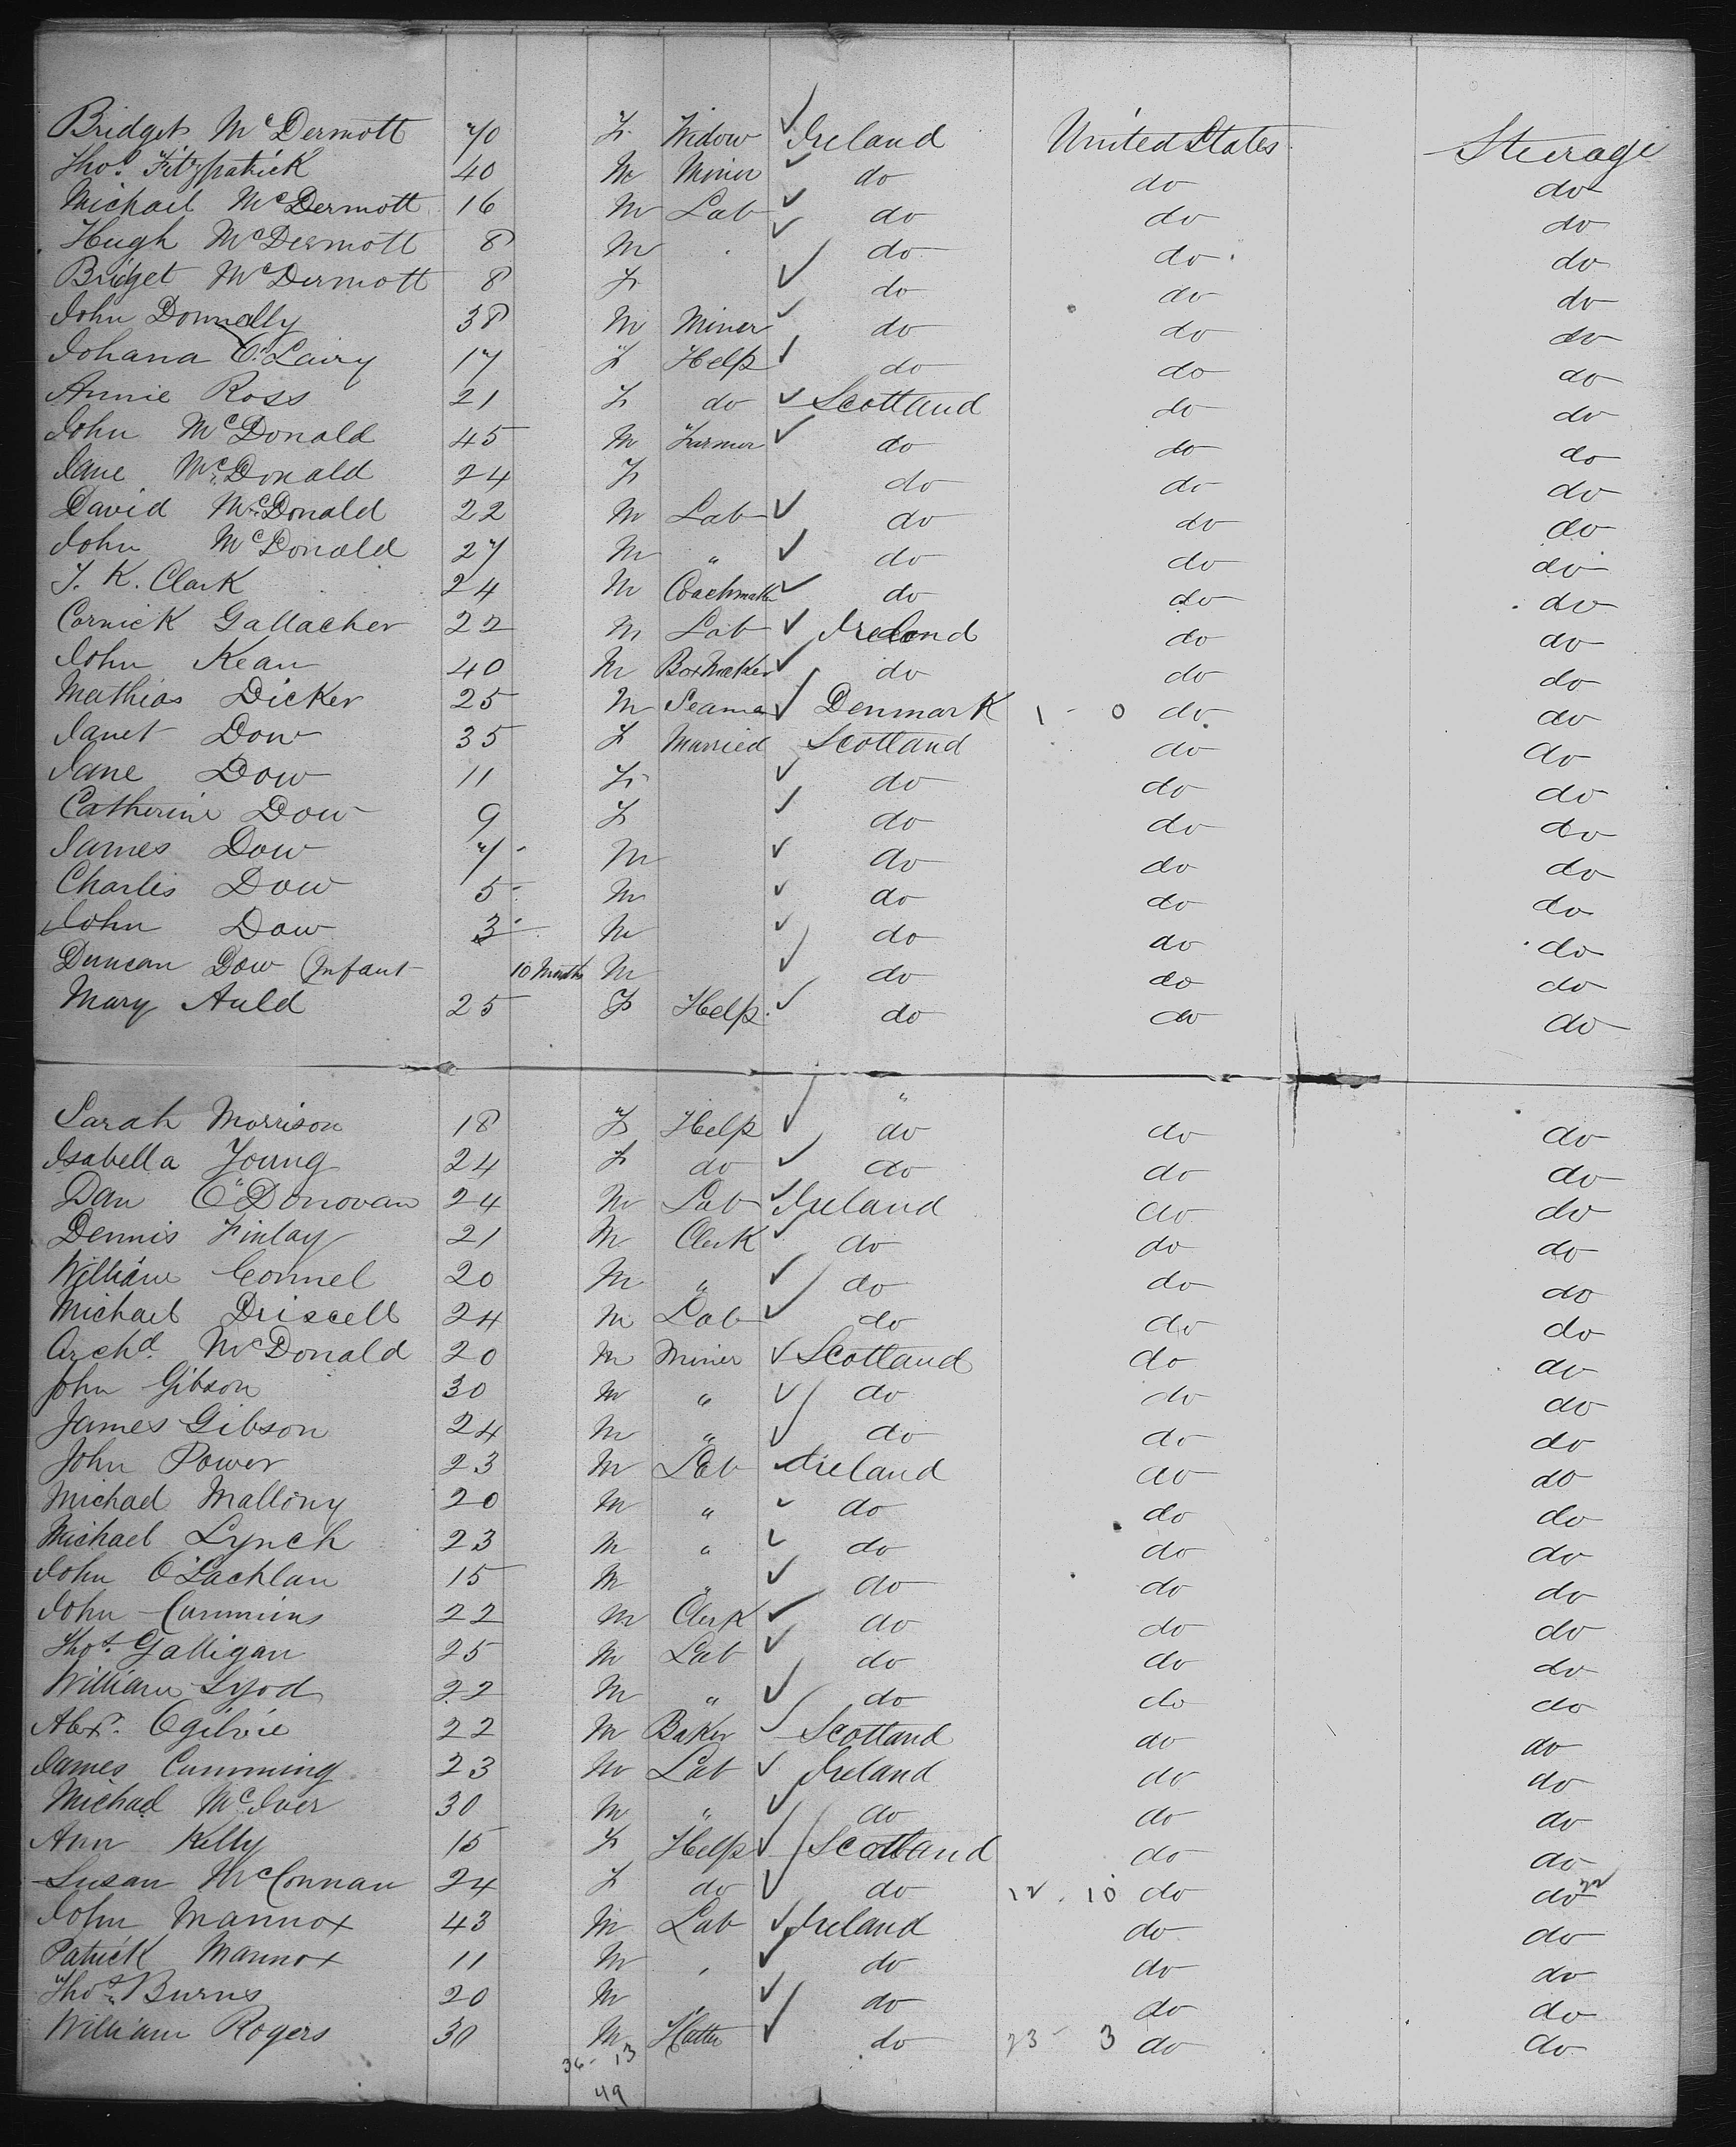 Bridget McDermott 70 F Widow Ireland United States Steerage
Thos Fitzpatrick 40 M Miner do do do
Michael McDermott 16 M Lab do do do
Hugh McDermott 8 M do do do
Bridget McDermott 8 F do do do
John Donnelly 38 M Miner do do do
Johana O'Lairy 17 F Help do do do
Annie Ross 21 F do Scottland do do
John McDonald 45 M Farmer do do do
Jane McDonald 24 F do do do
David McDonald 22 M Lab do do do
John McDonald 27 M " do do do
J. K. Clark 24 M Coachmaker do do do
Cornick Gallacher 22 M Lab Ireland do do
John Kean 40 M Boxmaker do do do
Mathias Dicker 25 M Seaman Denmark 1 - 0 do do
Janet Dow 35 F Married Scotland do do
Jane Dow 11 F do do do
Catherine Dow 9 F do do do
James Dow 7 M do do do
Charlis Dow 5 M do do do
John Dow 3 M do do do
Duncan Dow Infant 10 Months M do do do
Mary Auld 25 F Help do do do
"
Sarah Morrison 18 F Help do do do
Isabella Young 24 F do do do do
Dan O'Donovan 24 M Lab Ireland do do
Dennis Finlay 21 M Clerk do do do
William Connel 20 M " do do do
Michael Driscell 24 M Lab do do do
Archd. McDonald 20 M Miner Scotland do do
John Gibson 30 M " do do do
James Gibson 24 M " do do do
John Power 23 M Lab Ireland do do
Michael Mallony 20 M " do do do
Michael Lynch 23 M " do do do
John O'Lachlan 15 M " do do do
John Cummins 22 M Clerk do do do
Thos. Galligan 25 M Lab do do do
William Lyod 22 M " do do do
Alexr. Ogilvie 22 M Baker Scotland do do
James Cumming 23 M Lab Ireland do do
Michael McIver 30 M " do do do
Ann Kelly 15 F Help Scotland do do
Susan McConnan 24 F do do 12 - 10 do do 22
John Mannox 43 M Lab Ireland do do
Patrick Mannox 11 M do do do
Thos. Burns 20 M " do do do
William Rogers 30 M Hatter do 23 - 3 do do
36 - 13
49